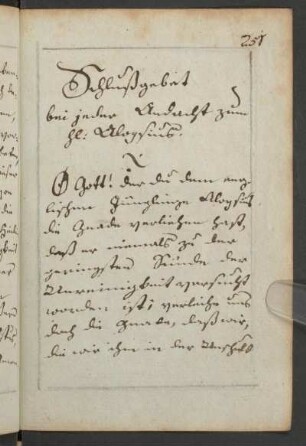 251
Schlußgebet
bei jeder Andacht zum
hl: Aloysius.
O Gott! der du dem eng-
lischen Jünglinge Aloysius
die Gnade verliehen hast,
daß er niemals zu der
geringsten Sünde der
Unreinigkeit versucht
worden ist; verleihe uns
doch die Gnade, daß wir,
die wir ihm in der Unschuld